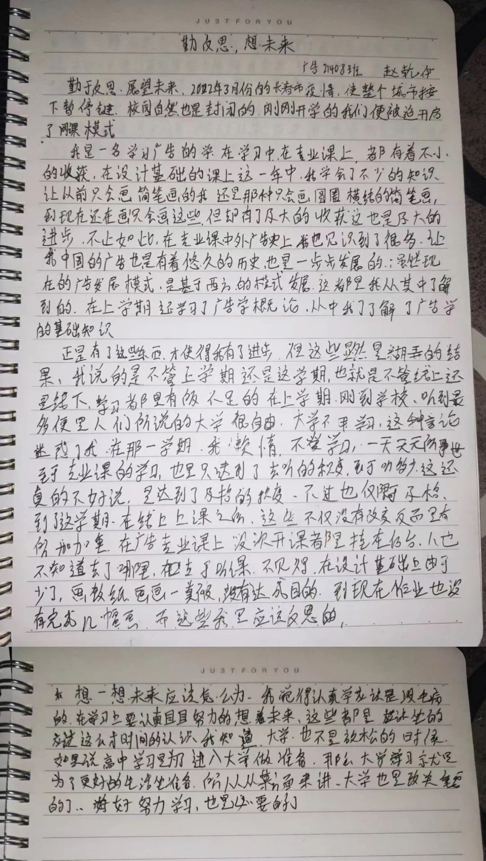 JUST FOR YOU
勤反思,想未来
广告21403班 赵乾
勤于反思,展望未来,2022年3月份的长春市疫情,使整个城市按
下暂停键,校园自然也是封闭的,刚刚开学的我们便被迫开启
了网课模式
我是一名学习广告的学 在学习中,在专业课上,都有着不小
的收获,在设计基础的课上这一年中,我学会了不少的知识
让从前只会画简笔画的我 还是那种只会画圆圈横线的简笔画,
到现在还在画只会画这些,但却有了及大的收获这也是及大的
进步,不止如此,在专业课中外广告史上我也见识到了很多,让
我中国的广告也是有着悠久的历史,也是一步步发展的,虽然现
在的广告发展模式,是基于西方的模式发展,这都是我从其中了解
到的,在上学期还学习了广告学概论,从中我了解了广告学
的基础知识
正是有了这些东西,才使得我有了进步,但这些显然是胡弄的结
果,我说的是不管上学期还是这学期,也就是不管线上还
是线下,学习都是有版人足的在上学期,刚到学校,听到最
多便是人们所说的大学很自由,大学不用学习,这种言论
迷惑了我,在那一学期,我懒惰,不爱学习,一天天无所事事
至于专业课的学习,也是只达到了去听的程度,至于听多少,这还
真的不好说,是达到了及格的程度,不过也仅限于及格,
到了这学期,在线上上课之余,这些不仅没有改变反而是有
所加重,在广告专业课上,没次开课都是挂在后台,人也
不知道去了哪里,
少了,画数纸画画一直做,没有达成目的,到现在作业也没
有完成几幅画,而这些我是应该反思的,
JUST FOR YOU
想一想未来应该怎么办,我觉得认真学应该是没毛病
的,在学习上要认真且努力的想着未来,这些都是
这么才时间的认识,我知道,大学,也不是放松的时候
如果说高中学习是为了进入大学做准备,那么大学学习就是
为了更好的生活生准备,所人从从来讲,大学也是
的了,好好努力学习,也是必要的